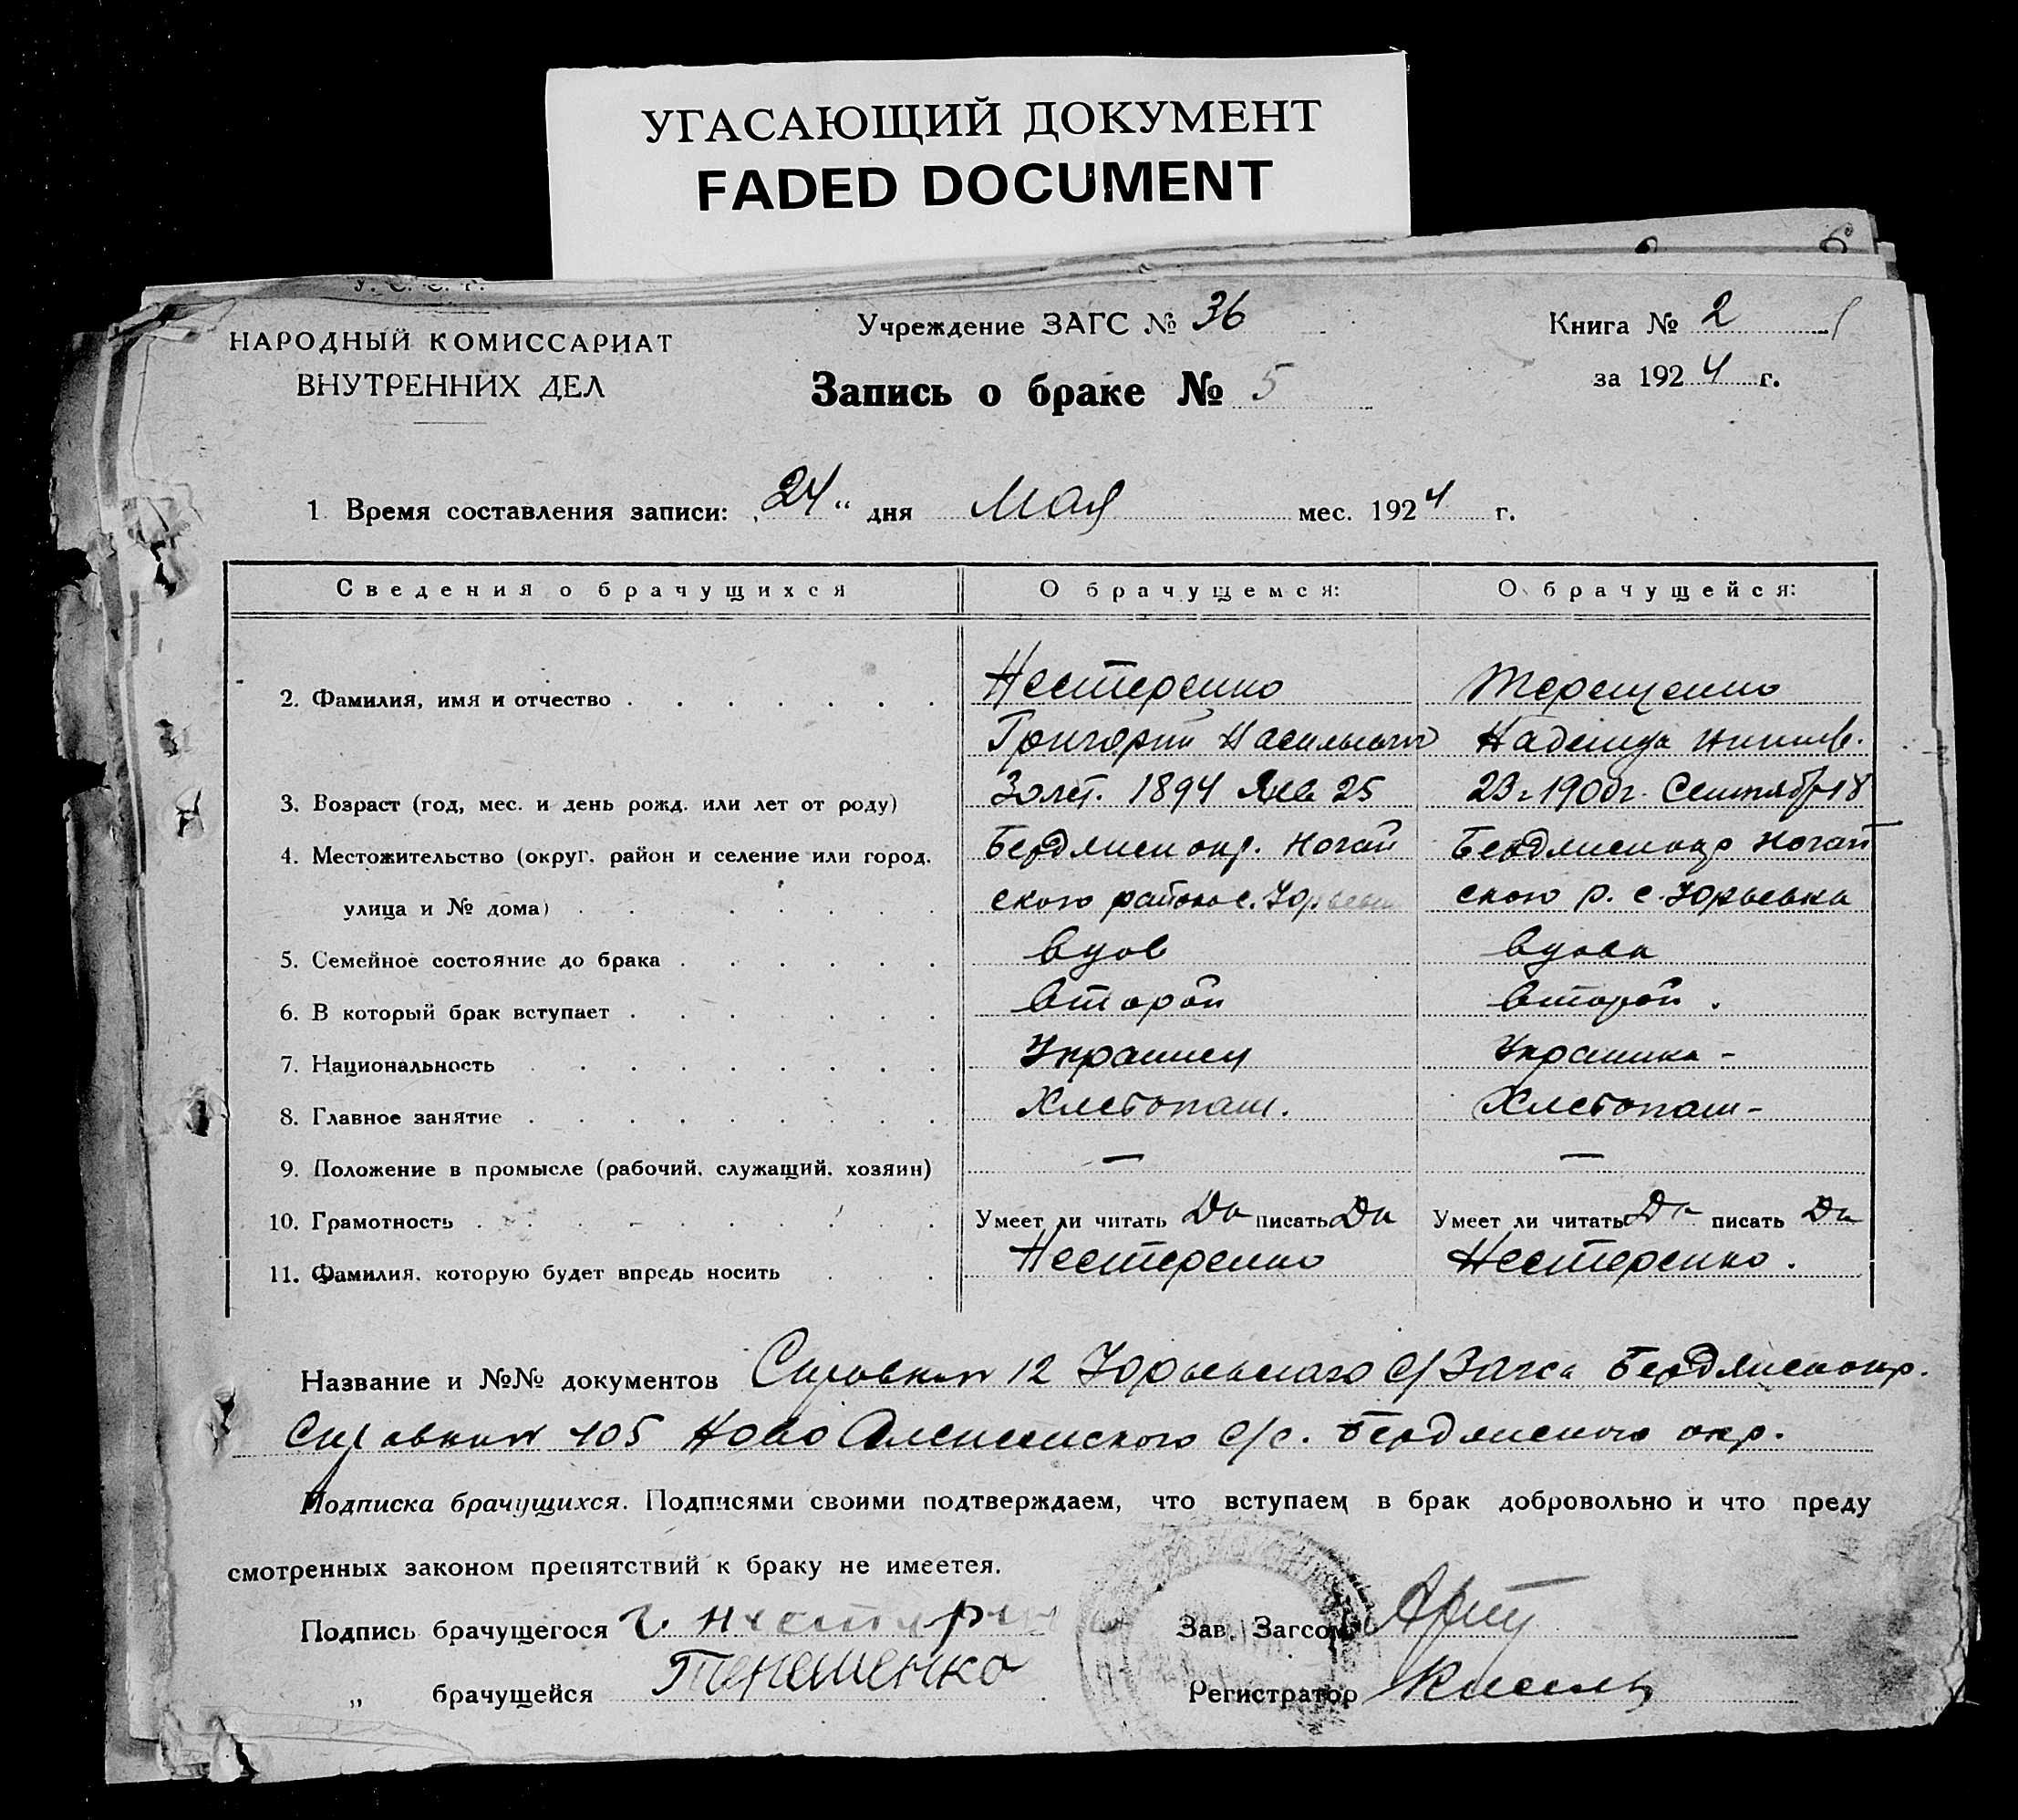 УГАСАЮЩИЙ ДОКУМЕНТ
FADED DOCUMENT
У. С. С. Р.
НАРОДНЫЙ КОМИССАРИАТ
ВНУТРЕННИХ ДЕЛ
Учреждение ЗАГС № 36
Запись о браке № 5
Книга № 2
за 1924 г.
1 Время составления записи: „24“ дня Мая мес. 1924 г.
Сведения о брачущихся О брачущемся: О брачущейся:
2. Фамилия, имя и отчество Нестеренко Терещенко
Григорий Васильевич Надежда
3. Возраст (год, мес. и день рожд. или лет от роду) 30 лет. 1894 Янв 25 23 г. 1900 г. Сентябр 18
4. Местожительство (округ, район и селение или город, Бердянск окр. Ногай Бердянск окр Ногай
улица и № дома) ского района с. Юрьевк ского р. с. Юрьевка
5. Семейное состояние до брака вдов вдова
6. В который брак вступает второй второй.
7. Национальность Украинец Украинка -
8. Главное занятие Хлебопаш. Хлебопаш-
9. Положение в промысле (рабочий, служащий, хозяин) — —
10. Грамотность Умеет ли читать Да писать Да Умеет ли читать Да писать Да
11. Фамилия, которую будет впредь носить Нестеренко Нестеренко.
Название и №№ документов Справка № 12 Юрьевского с/Загса Бердянск окр.
Справка № 105 Ново Алексеевского с/с. Бердянского окр.
Подписка брачущихся. Подписями своими подтверждаем, что вступаем в брак добровольно и что преду
смотренных законом препятствий к браку не имеется.
Подпись брачущегося Г. Нестерен Зав. Загсом
„ брачущейся Терешенко Регистратор Кисель